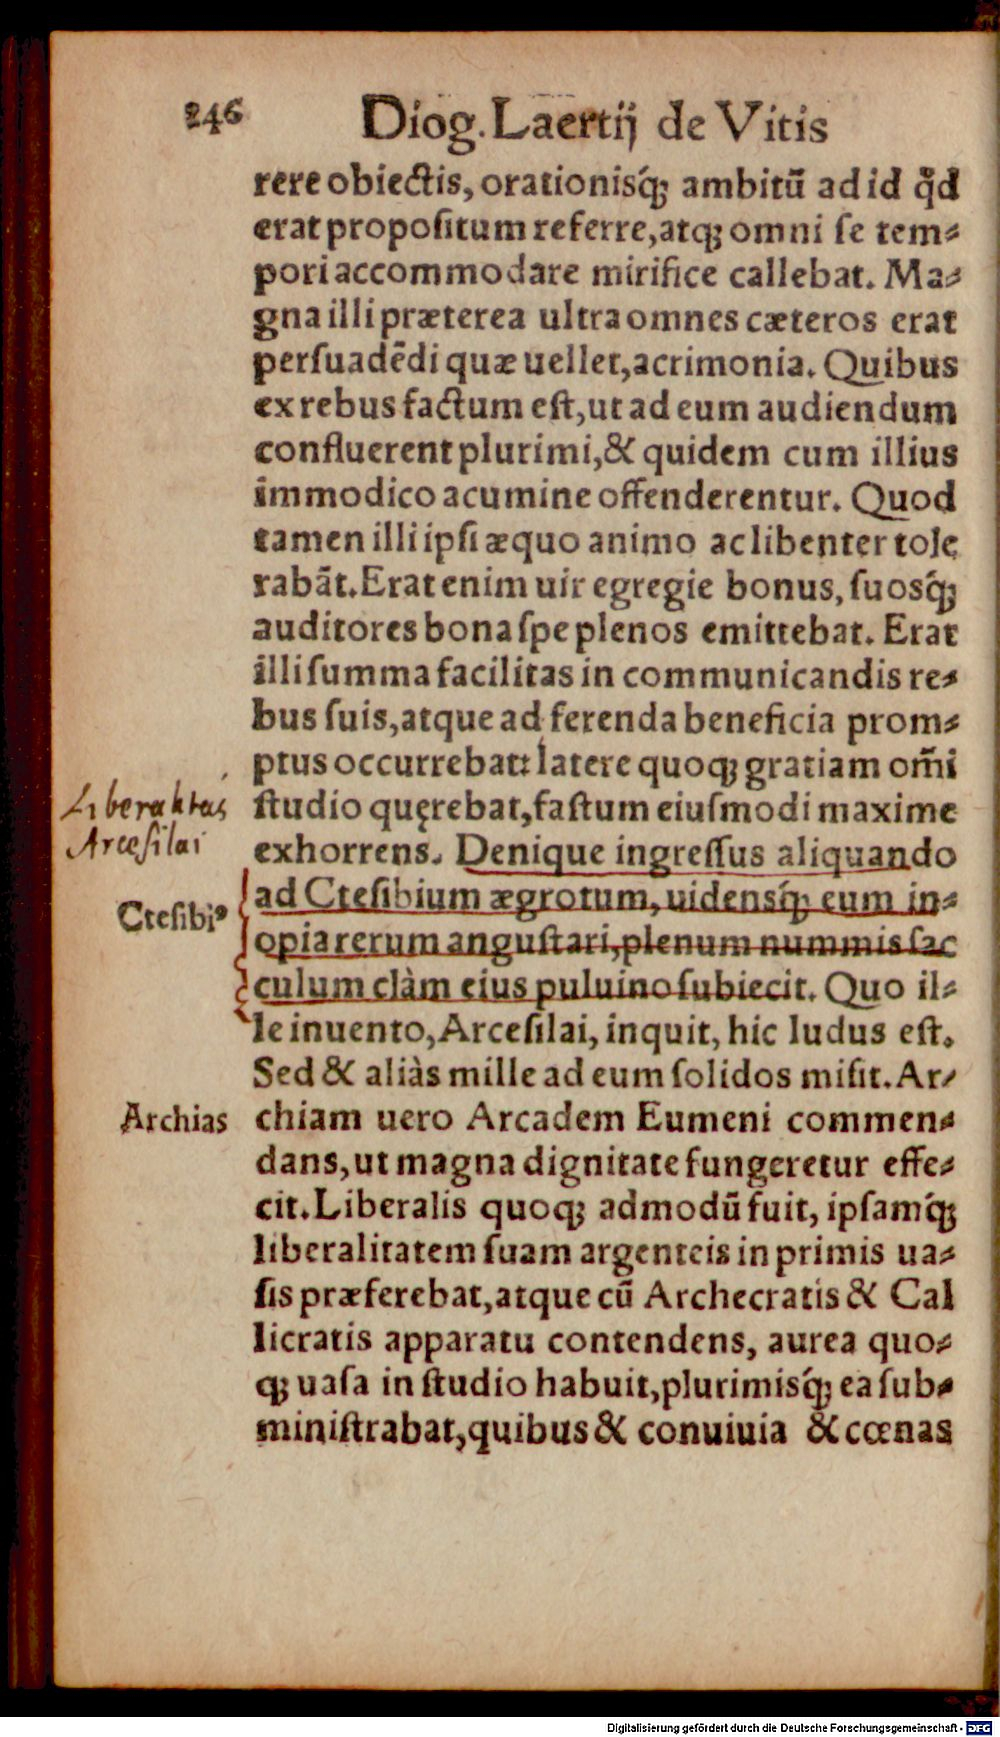 246 Diog. Laertij de Vitis
rere obiectis, orationisq́; ambitũ ad id qd̃
erat propositum referre, atq; omni se tem⸗
pori accommodare mirifice callebat. Ma⸗
gna illi præterea ultra omnes cæteros erat
persuadẽdi quæ uellet, acrimonia. Quibus
ex rebus factum est, ut ad eum audiendum
confluerent plurimi, & quidem cum illius
immodico acumine offenderentur. Quod
tamen illi ipsi æquo animo ac libenter tole
rabãt. Erat enim uir egregie bonus, suosq́;
auditores bona spe plenos emittebat. Erat
illi summa facilitas in communicandis re⸗
bus suis, atque ad ferenda beneficia prom⸗
ptus occurrebat: latere quoq; gratiam om̃i
Liberalitas
studio quęrebat, fastum eiusmodi maxime
Arcesilai
exhorrens. Denique ingressus aliquando
ad Ctesibium ægrotum, uidensq́; eum in⸗
Ctesibiꝰ
opia rerum angustari, plenum nummis sac
culum clàm eius puluino subiecit. Quo il⸗
le inuento, Arcesilai, inquit, hic ludus est.
Sed & aliàs mille ad eum solidos misit. Ar⸗
Archias
chiam uero Arcadem Eumeni commen⸗
dans, ut magna dignitate fungeretur effe⸗
cit. Liberalis quoq; admodũ fuit, ipsamq́;
liberalitatem suam argenteis in primis ua⸗
sis præferebat, atque cũ Archecratis & Cal
licratis apparatu contendens, aurea quo⸗
q; uasa in studio habuit, plurimisq́; ea sub⸗
ministrabat, quibus & conuiuia & cœnas
Digitalisierung gefördert durch die Deutsche Forschungsgemeinschaft - DFG